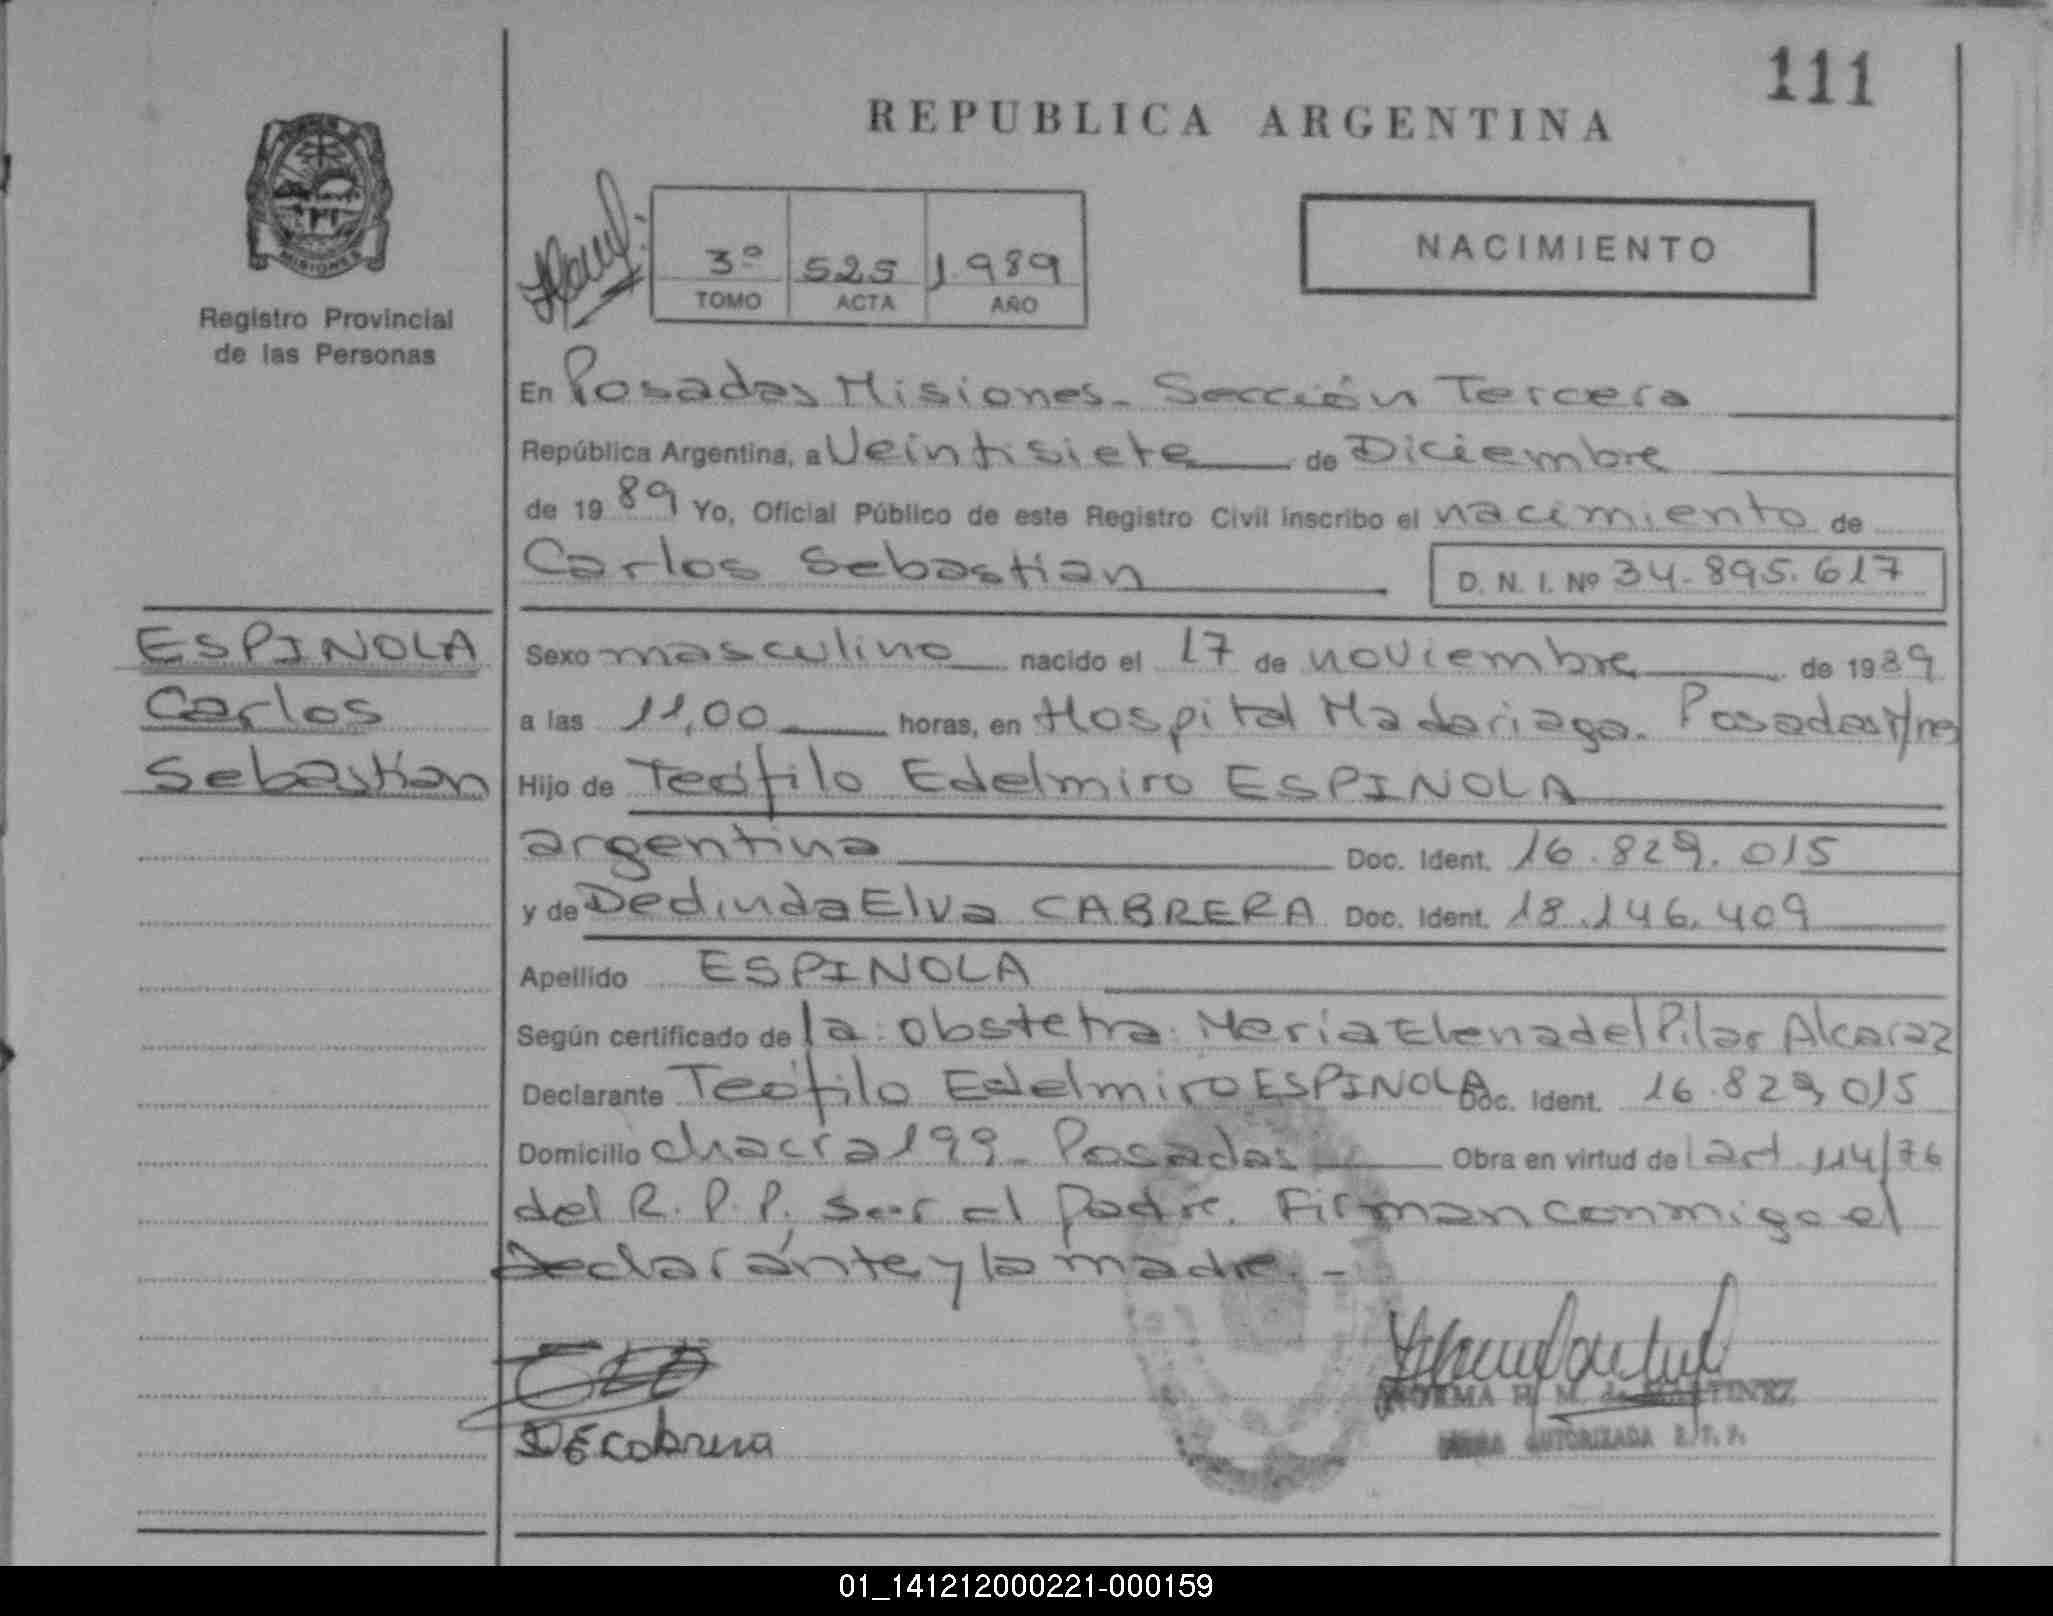 111
REPUBLICA ARGENTINA
MISIONES
Registro Provincial
de las Personas
3º 525 1.989
TOMO ACTA AÑO
NACIMIENTO
En Posadas Misiones - Sección Tercera
República Argentina, a Veintisiete de Diciembre
de 1989 Yo, Oficial Público de este Registro Civil inscribo el nacimiento de
Carlos Sebastian D. N. I. Nº 34.895.617
ESPINOLA
Carlos
Sebastian
Sexo masculino nacido el 17 de noviembre de 1989
a las 11,00 horas, en Hospital Madariaga. Posadas Mnes
Hijo de Teófilo Edelmiro ESPINOLA
argentina Doc. Ident. 16.829.015
y de Dedinda Elva CABRERA Doc. Ident. 18.146.409
Apellido ESPINOLA
Según certificado de la obstetra Maria Elena del Pilar Alcaraz
Declarante Teófilo Edelmiro ESPINOLA Doc. Ident. 16.829,015
Domicilio chacra 199 - Posadas Obra en virtud del art 114/76
del R. P. P. ser el padre. Firman conmigo el
declarante y la madre. -
DECabrera
NORMA H. M. de MARTINEZ
AUTORIZADA R. P. P.
01_141212000221-000159